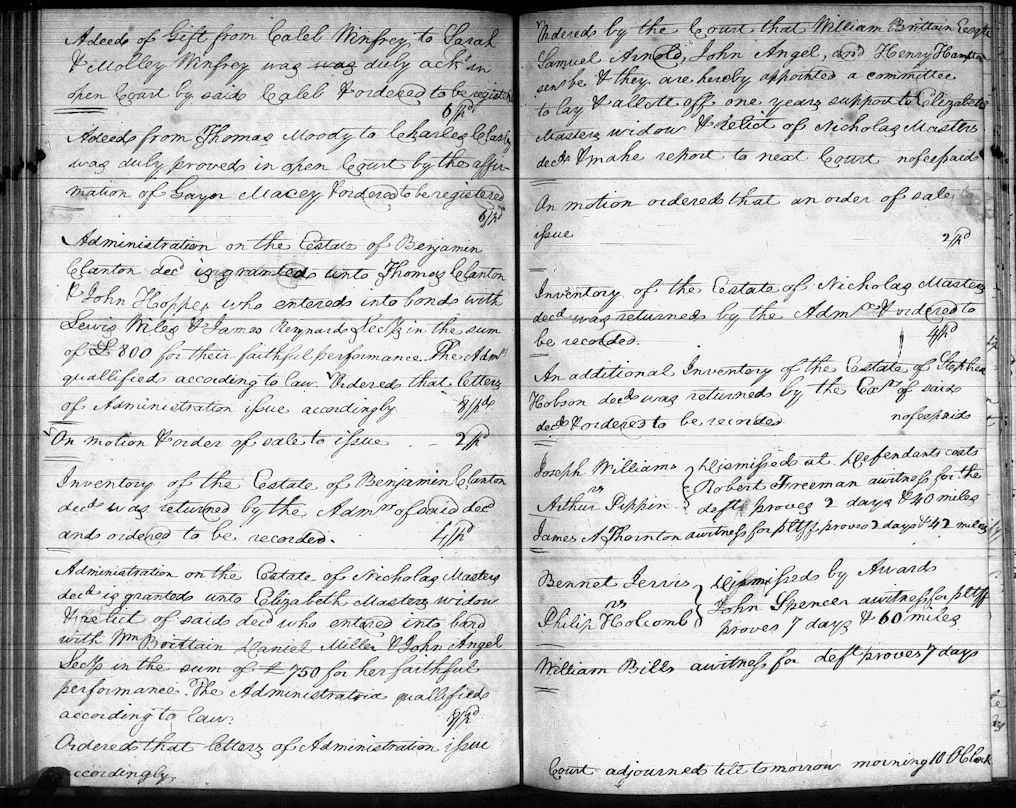 A deed of Gift from Caleb Winfrey to Sarah
& Molley Winfrey was was duly ackd in
open Court by said Caleb & ordered to be registd
6/pd
A deed from Thomas Moody to Charles Clasby
was duly proved in open Court by the affir-
mation of Gayor Macey & ordered to be registered
6/pd
Administration on the Estate of Benjamin
Clanton decd is granted unto Thomas Clanton
& John Hopper who entered into bond with
Lewis Wiles & James Reynard Secys in the sum
of £ 800 for their faithful performance. The Admrs
quallified according to law. Ordered that letters
of Administration issue accordingly. 8/pd
On motion & order of sale to issue - 2/pd
Inventory of the Estate of Benjamin Clanton
decd was returned by the Admrs of said decd
and ordered to be recorded. 4/pd
Administration on the Estate of Nicholas Masters
decd is granted unto Elizabeth Masters widow
& relict of said decd who entered into bond
with Wm Brittain Daniel Miller & John Angel
Secys in the sum of £ 750 for her faithful
performance. The Administratrix quallified
according to law. 8/pd
Ordered that letters of Administration issue
accordingly.
Ordered by the Court that William Brittain Esqr
Samuel Arnold, John Angel, and Henry Hampton
senr be & they are hereby appointed a committee
to lay & allott off one years support to Elizabeth
Masters widow & relict of Nicholas Masters
decd & make report to next Court no fee paid
On motion ordered that an order of sale
issue 2/pd
Inventory of the Estate of Nicholas Masters
decd was returned by the Admrx & ordered to
be recorded. 4/pd
An additional Inventory of the Estate of Stephen
Hobson decd was returned by the Exrs of said
decd & ordered to be recorded no fee paid
Joseph Williams } Dismissed at Defendants costs
vs { Robert Freeman a witness for the
Arthur Pippin deft proves 2 days & 40 miles
James A Thornton a witness for pltff proves 2 days & 42 miles
Bennet Jervis } Dismissed by Award
vs John Spencer a witness for pltff
Philip Holcomb proves 7 days & 60 miles
William Bills a witness for deft proves 7 days
Court adjourned till tomorrow morning 10 OClock